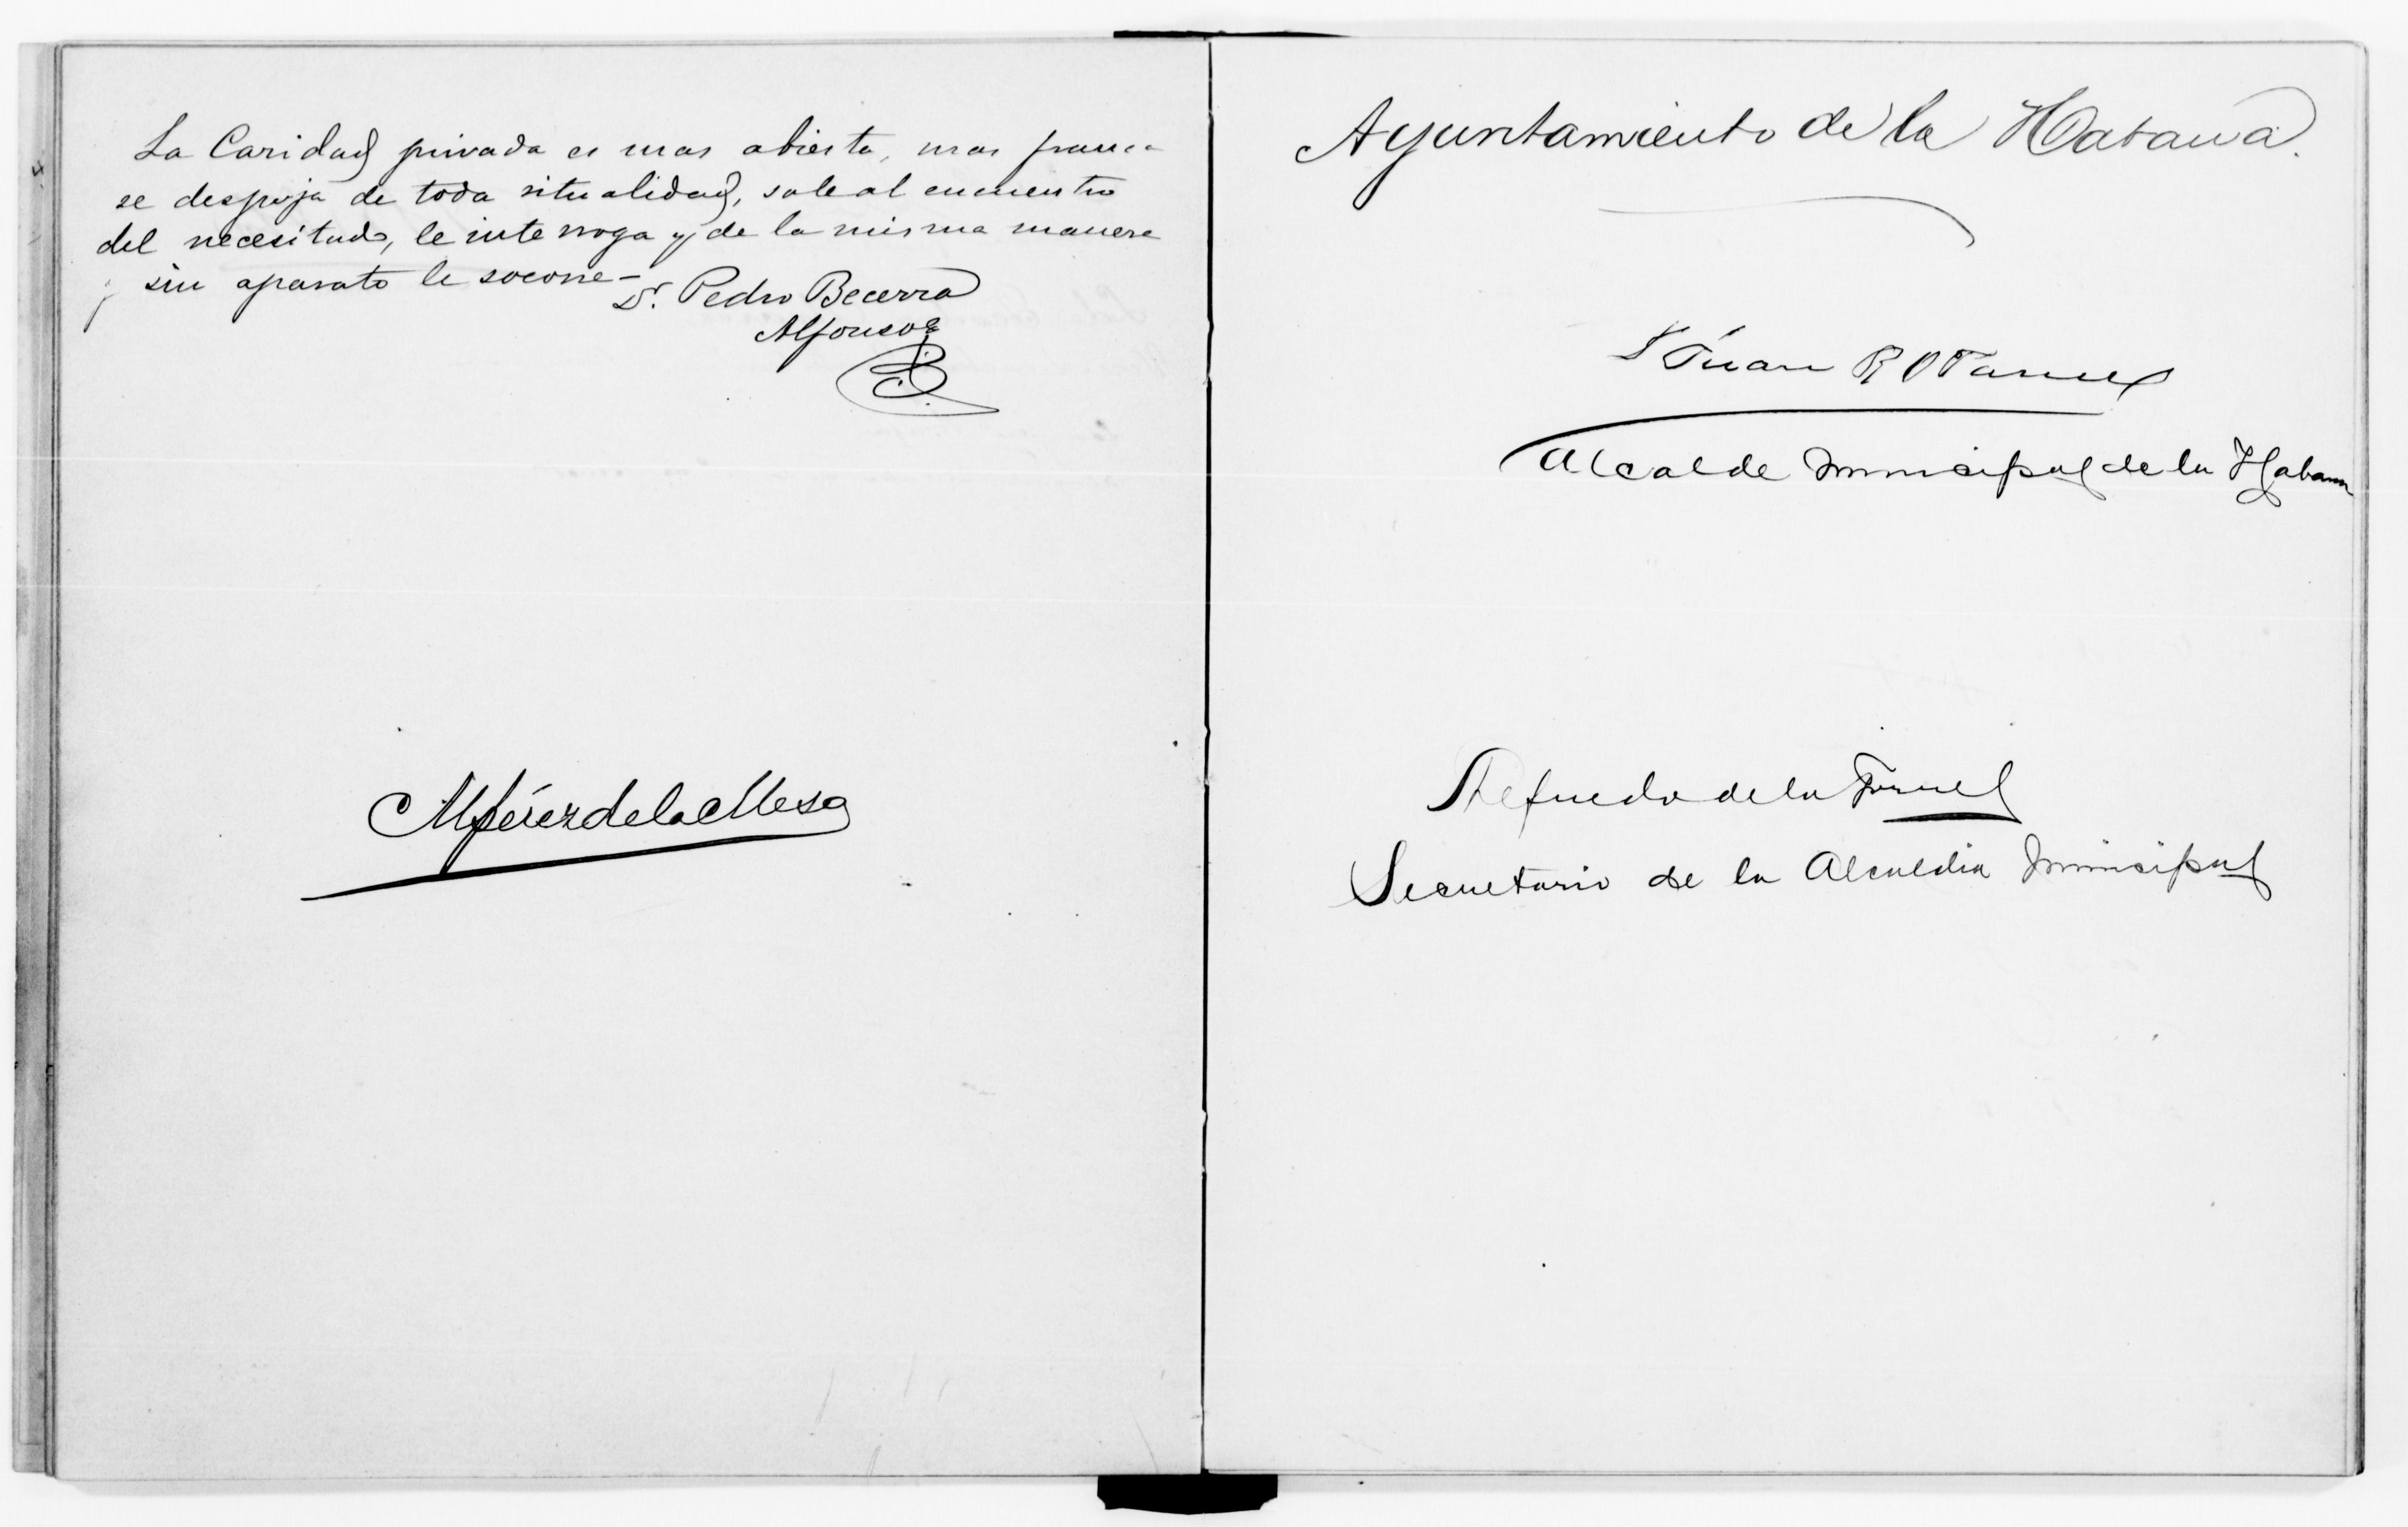 La Caridad privada es mas abierta, mas franca
se despoja de toda ritualidad, sale al encuentro
del necesitado, le interroga y de la misma manera
y sin aparato le socorre—
Dr. Pedro Becerra
Alfonso
M Pérez de la Mesa
Ayuntamiento de la Habana.
Juan R O'Farrill
Alcalde Municipal de la Habana
de la
Secretario de la Alcaldia Municipal